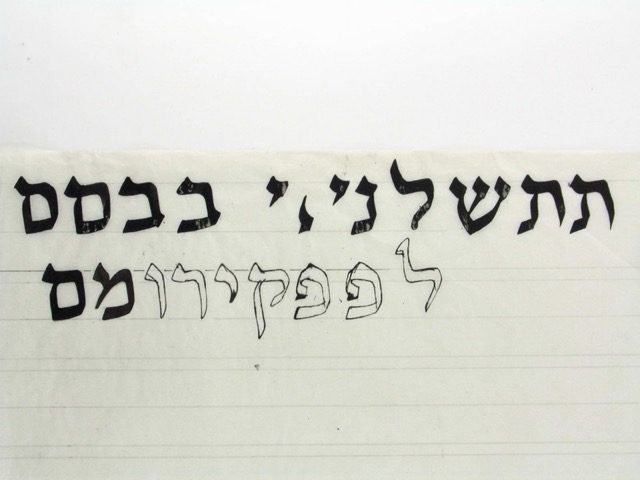 תתשלני,י בבסם
לפפקירומם